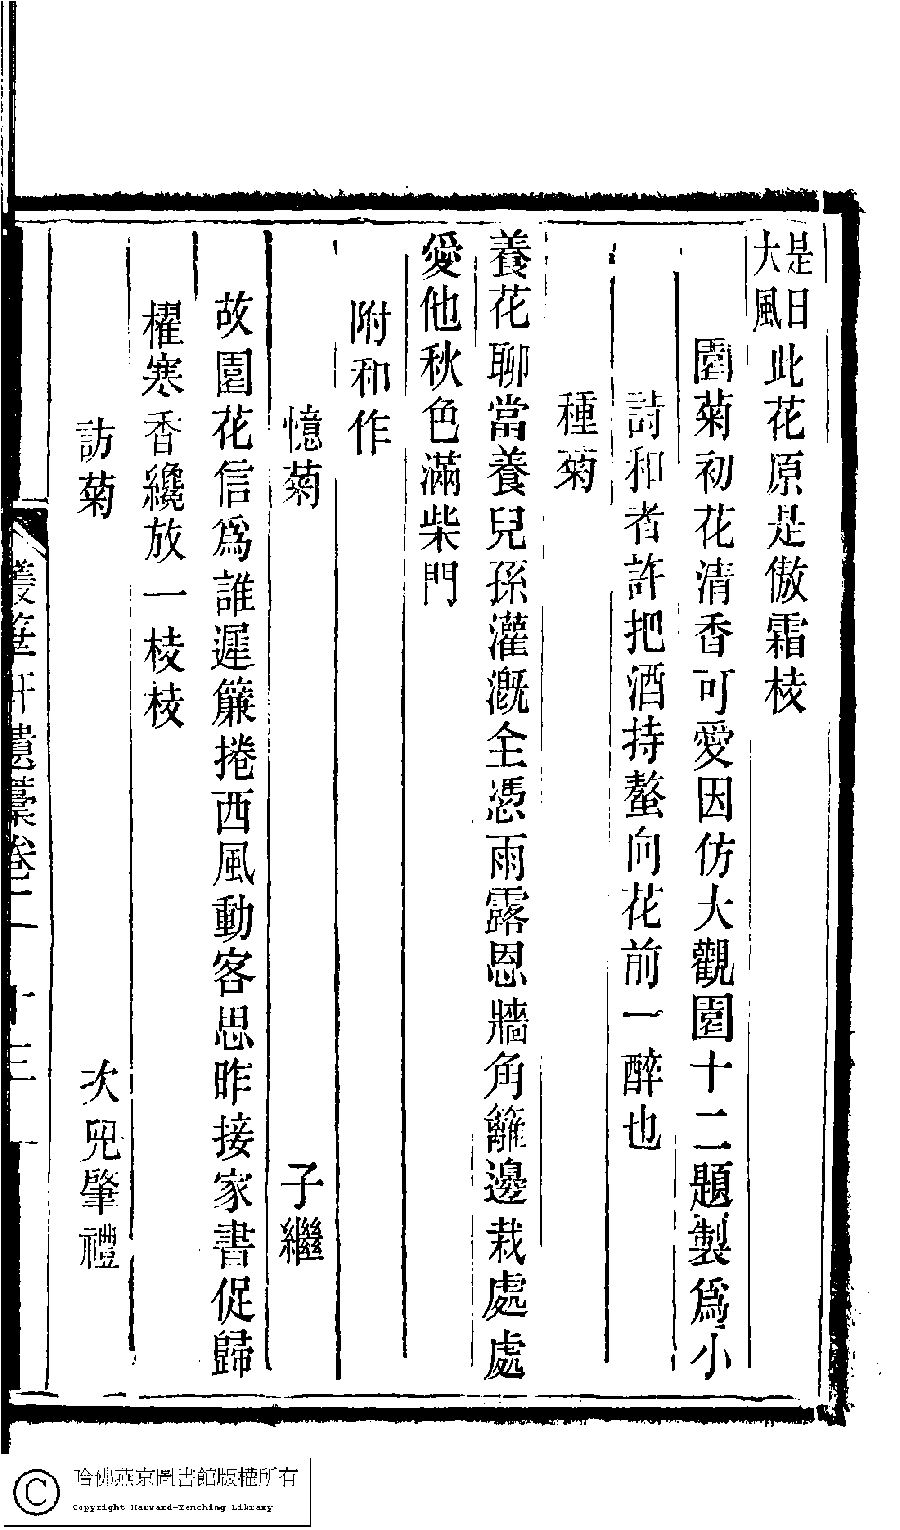 是日大風此花原是傲霜枝
園菊初花清香可愛因仿大觀園十二題製爲小
詩和者許把酒持螯向花前一醉也
種菊
養花聊當養兒孫灌溉全憑雨露恩牆角籬邊栽處處
愛他秋色滿柴門
附和作
憶菊 子繼
故園花信爲誰遲簾捲西風動客思昨接家書促歸
櫂寒香纔放一枝枝
訪菊 次兒肇禮
軒遺藁卷二 十三
哈佛燕京圖書館版權所有
Copyright Harvard-Yenching Library